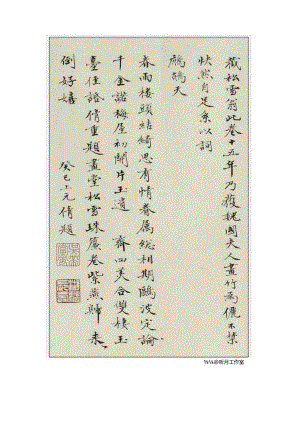 藏松雪翁此卷十五年乃獲魏國夫人畫竹為儷不禁
快然自足系以詞
鷓鴣天
春雨樓頭結綺思有情眷屬總利期鷗波定論
千金諾梅屋初開片玉遺 齋四美合雙棲玉
臺佳證倩重題畫堂松雪珠簾卷紫燕歸來
倒好嬉
癸巳上元倩題
%%@听月工作室